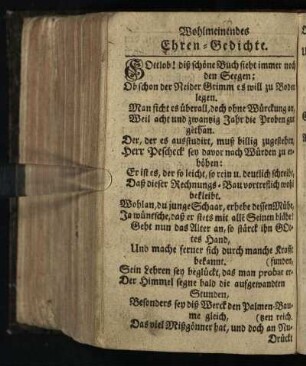 Wohlmeinendes
Ehren-Gedichte.
GOttlob! diß schöne Buch sieht immer noch
den Seegen;
Ob schon der Neider Grimm es will zu Boden
legen.
Man sieht es überall, doch ohne Würckung an,
Weil acht und zwantzig Jahr die Proben gut
gethan.
Der, der es ausstudirt, muß billig zugestehen,
Herr Pescheck sey davor nach Würden zu er-
höhen:
Er ist es, der so leicht, so rein u. deutlich schreibt,
Daß dieser Rechnungs-Bau vortreflich wohl
bekleibt.
Wohlan, du junge Schaar, erhebe dessen Mühe,
Ja wünsche, daß er stets mit alle Seinen blühe!
Geht nun das Alter an, so stärck ihn GOt-
tes Hand,
Und mache ferner sich durch manche Kraft
bekannt. (funden,
Sein Lehren sey beglückt, das man probat er-
Der Himmel segne bald die aufgewandten
Stunden,
Besonders sey diß Werck den Palmen-Bäu-
me gleich, (tzen reich.
Das viel Mißgönner hat, und doch an Nu-
Drückt